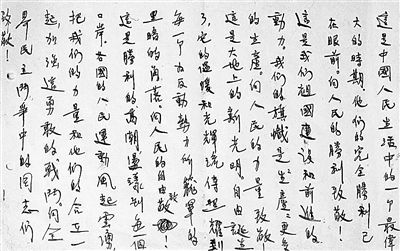 這是中国人民生活中的一个最偉
大的時期，他们的完全勝利已
在眼前。向人民的勝利致敬！
這是我们祖國建设和前進的
動力，我们的旗幟是生產……更多
的生產。向人民的力量致敬
這是大地上的新光明。自由誕生
了，它的温暖和光輝流傳照耀到
每一个为反動勢力所籠罩的
黑暗的角落。向人民的自由致敬
這是勝利的高潮，到每一個
口岸，各國的人民運動風起雲湧，
把我们的力量和他们的合在一
起，加强這勇敢的戰鬥。向全
世界民主鬥爭中的同志们
致敬！